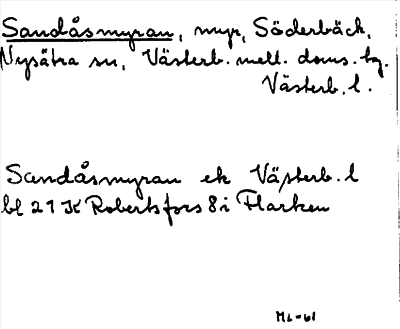 Sandåsmyran, myr, Söderbäck,
Nysätra sn, Västerb. mell. doms. bg.
Västerb. l.
Sandåsmyran ek Västerb. l
bl 21 K Robertsfors 8 i Flarken
ML-61